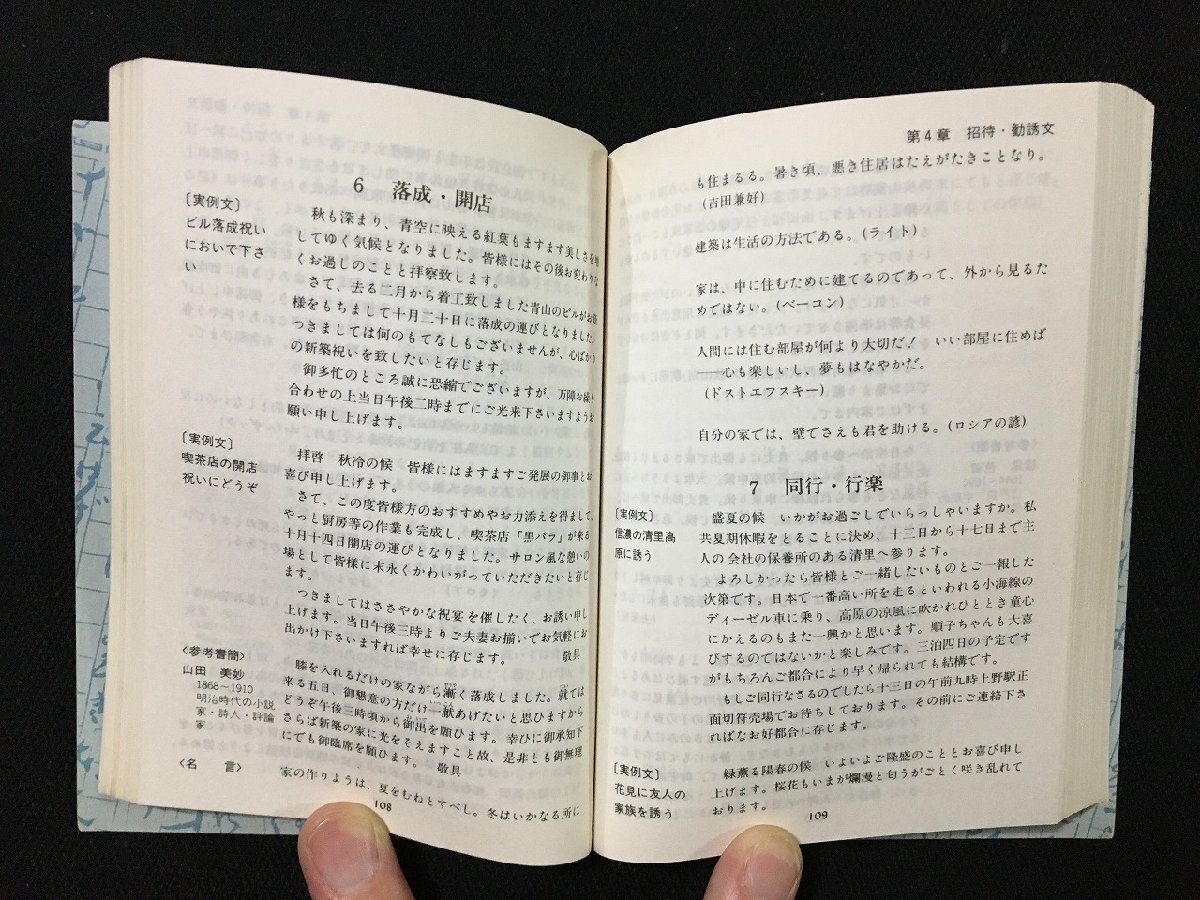 6 落成・開店
〔実例文〕
ビル落成祝い
においで下さ
い
秋も深まり、青空に映える紅葉もますます美しさを増
してゆく気候となりました。皆様にはその後お変わりな
くお過しのことと拝察致します。
さて、去る二月から着工致しました青山のビルがお
様をもちまして十月二十日に落成の運びとなりました。
つきましては何のもてなしもございませんが、心ばかり
の新築祝いを致したいと存じます。
御多忙のところ誠に恐縮でございますが、万障お繰り
合わせの上当日午後二時までにご光来下さいますようお
願い申し上げます。
〔実例文〕
喫茶店の開店
祝いにどうぞ
拝啓 秋冷の候 皆様にはますますご発展の御事とお
喜び申し上げます。
さて、この度皆様方のおすすめやお力添えを得まして、
やっと厨房等の作業も完成し、喫茶店「黒バラ」が来る
十月十四日開店の運びとなりました。サロン風な憩いの
場として皆様に末永くかわいがっていただきたいと存じ
ます。
つきましてはささやかな祝宴を催したく、お誘い申し
上げます。当日午後三時よりご夫妻お揃いでお気軽にお
出かけ下さいますれば幸せに存じます。 敬具
〈参考書簡〉
山田 美妙
1868~1910
明治時代の小説
家・詩人・評論
家
膝を入れるだけの家ながら漸く落成しました。就ては
来る五日、御懇意の方だけ一献あげたいと思ひますから
どうぞ午後三時頃から御出を願ひます。幸ひに御承知下
さらば新築の家に光をそえますこと故、是非とも御無理
にでも御臨席を願ひます。 敬具
〈名 言〉
家の作りようは、夏をむねとすべし。冬はいかなる所に
108
第4章 招待・勧誘文
も住まるる。暑き頃、悪き住居はたえがたきことなり。
(吉田兼好)
建築は生活の方法である。(ライト)
家は、中に住むために建てるのであって、外から見るた
めではない。(ベーコン)
人間には住む部屋が何より大切だ! いい部屋に住めば
──心も楽しいし、夢もはなやかだ。
(ドストエフスキー)
自分の家では、壁でさえも君を助ける。(ロシアの諺)
7 同行・行楽
〔実例文〕
信濃の清里高
原に誘う
盛夏の候 いかがお過ごしでいらっしゃいますか。私
共夏期休暇をとることに決め、十三日から十七日まで主
人の会社の保養所のある清里へ参ります。
よろしかったら皆様とご一緒したいものとご一報した
次第です。日本で一番高い所を走るといわれる小海線の
ディーゼル車に乗り、高原の涼風に吹かれひととき童心
にかえるのもまた一興かと思います。順子ちゃんも大喜
びするのではないかと楽しみです。三泊四日の予定です
がもちろんご都合により早く帰られても結構です。
もしご同行なさるのでしたら十三日の午前九時上野駅正
面切符売場でお待ちしております。その前にご連絡下さ
ればなお好都合に存じます。
〔実例文〕
花見に友人の
家族を誘う
緑薫る陽春の候 いよいよご隆盛のこととお喜び申し
上げます。桜花もいまが爛漫と匂うがごとく咲き乱れて
おります。
109